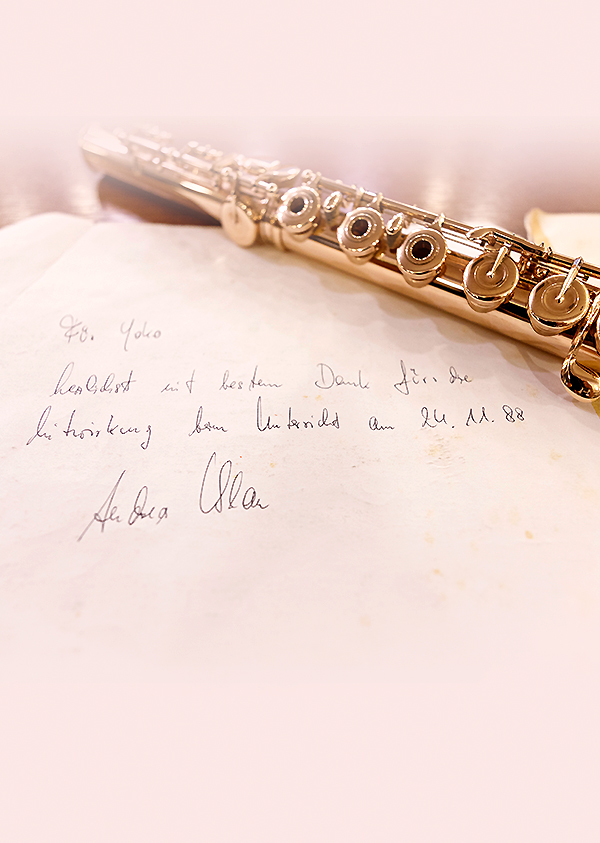 Für Yoko
herzlichst mit bestem Dank für die
Mitwirkung beim Unterricht am 24. 11. 88
Andrea